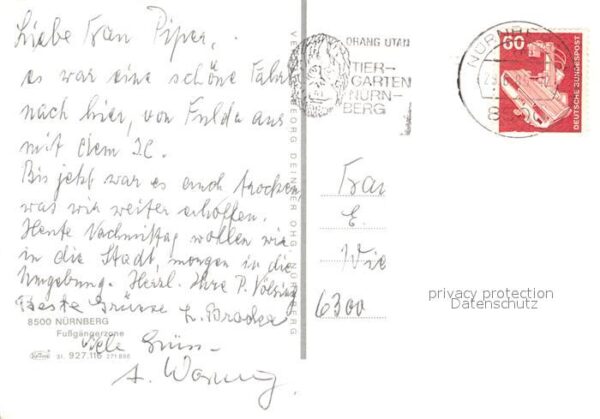 Liebe Frau Piper,
es war eine schöne Fahrt
nach hier, von Fulda aus
mit dem IC.
Bis jetzt war es auch trocken
was wir weiter erhoffen.
Heute Nachmittag wollen wir
in die Stadt, morgen in die
Umgebung. Herzl. Ihre P.
Beste Grüsse
8500 NÜRNBERG
Fußgängerzone
Viele Grüsse
31. 927.116
A.
ORANG UTAN
TIER-
GARTEN
NÜRN-
BERG
NÜRNBE
60
DEUTSCHE BUNDESPOST
Frau
E.
Wie
6300
privacy protection
Datenschutz